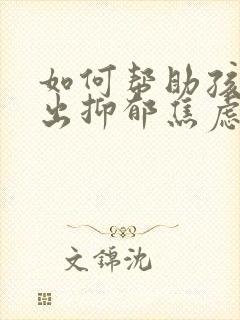 如何帮助孩
出抑郁焦虑
文锦沈